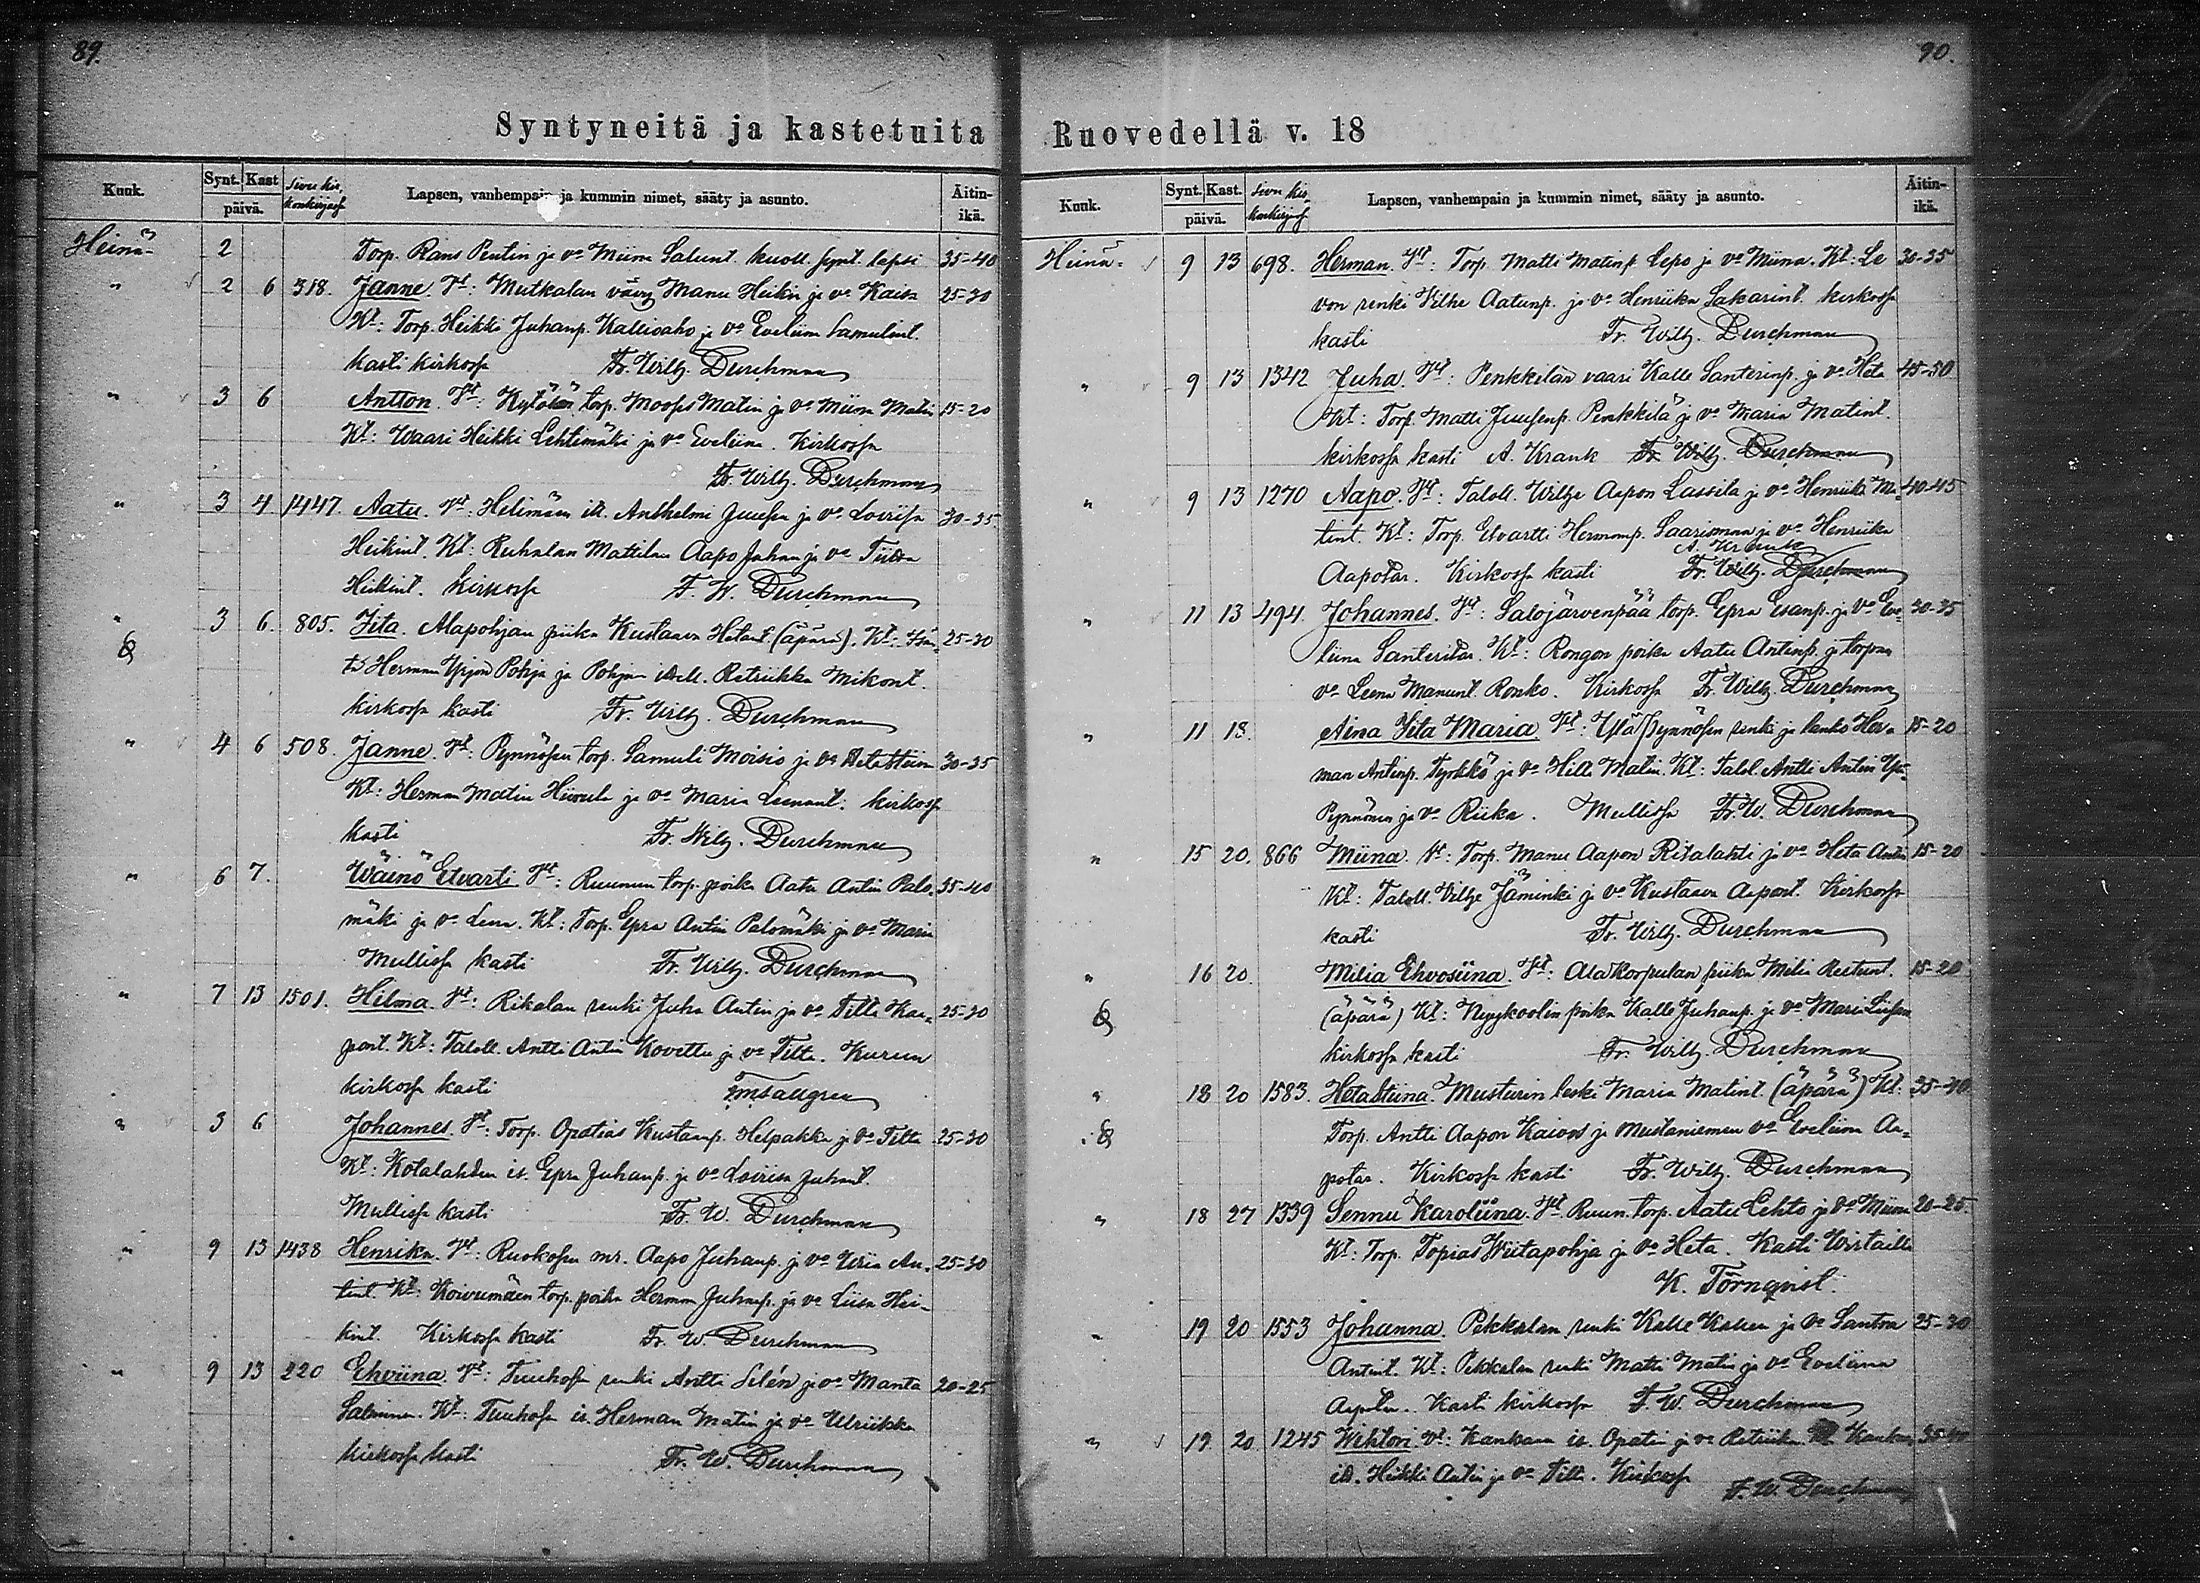 89.
Syntyneitä ja kastetuita
Kuuk. Synt. Kast päivä. Sivu kir, konkirjassa Lapsen, vanhempain ja kummin nimet, sääty ja asunto. Äitin-ikä.
Heinä- 2 Torp. Rans Pentin ja vo Miina Salunt. kuoll. synt. lapsi 35-40
" 2 6 318. Janne. Vt: Mutkalan vävy Manu Heikin ja vo Kaisa 25-30
Kt: Torp. Heikki Juhanp. Kallioaho ja vo Eveliina Samulint.
kasti kirkossa Fr. Wilh. Durchman
" 3 6 Antton. Vt: torp. Mooses Matin ja vo Miina Matin 15-20
Kt: Waari Heikki Lehtimäki ja vo Eveliina. Kirkossa
Fr. Wilh. Durchman
" 3 4 1447. Aatu. Vt: Helimäen it. Anthelmi Juusen ja vo Loviisa 30-35
Heikint. Kt: Ruhalan Mattilan Aapo Juhan ja vo
Heikint. Kirkossa F. W. Durchman
" 3 6. 805. Iita. Alapohjan piika Kustaava Hetant. (äpärä). Kt: Isän- 25-30
tä Herman Yrjön Pohja ja Pohjan Retriikka Mikont.
kirkossa kasti Fr. Wilh. Durchman
" 4 6 508. Janne. Vt: Pynnösen torp. Samuli Moisio ja vo Hetastiina 30-35
Kt: Herman Matin ja vo Maria kirkossa
kasti Fr. Wilh. Durchman
" 6 7. Wäinö Etvarti. Vt: Ruunun torp. poika Aatu Antin Palo- 35-40
mäki ja vo Leena. Kt: Torp. Epra Antin Palomäki ja vo Maria
Mullissa kasti Fr. Wilh. Durchman
" 7 13 1501. Hilma. Vt: Rikalan renki Juha Antin ja vo Tilta Kaa- 25-30
pont. Kt: Taloll. Antti Antin ja vo Tilta. Kurun
kirkossa kasti
" 3 6 Johannes. Vt: Torp. Opatias Kustaanp. Helpakka ja vo Tilta 25-30
Kt: Kotalahden is. Epra Juhanp. ja vo Loviisa Juhant.
Mullissa kasti Fr. W. Durchman
" 9 13 1438 Henrika. Vt: Ruokosen mr. Aapo Juhanp. ja vo An- 25-30
tint. Kt: Koivumäen torp. poika Herman Juhanp. ja vo Liisa Hei-
kint. Kirkossa kasti Fr. W. Durchman
" 9 13 220 Ehviina. Vt: Tuuhosen renki Antti Silén ja vo Manta 20-25
Kt: Tuuhosen is. Herman Matin ja vo Ulriikka
kirkossa kasti Fr. W. Durchman
90.
Ruovedellä v. 18
Kuuk. Synt. Kast. päivä. Sivu kir, konkirjassa Lapsen, vanhempain ja kummin nimet, sääty ja asunto. Äitin-ikä.
Heinä- 9 13 698. Herman. Vt: Torp. Matti Matinp. Lepo ja vo Miina. Kt: Le 30-35
von renki Vilhe Aatunp. ja vo Henriika Sakarint. kirkossa
kasti Fr. Wilh. Durchman
" 9 13 1342 Juha. Vt: Penkkilän vaari Kalle Santerinp. ja vo Heta 45-50
Kt: Torp. Matti Juusenp. Penkkilä ja vo Maria Matint.
kirkossa kasti A. Krank Fr. Wilh. Durchman
" 9 13 1270 Aapo. Vt: Taloll. Wilhe Aapon Lassila ja vo Henriika Ma- 40-45
tint. Kt: Torp. Etvartti Hermanp. Saarisman ja vo Henriika
A. Krank
Aapotar. Kirkossa kasti Fr. Wilh. Durchman
" 11 13 494. Johannes. Vt: Salojärvenpää torp. Epra Esanp. ja vo Eve- 30-35
liina Santeritar. Kt: Rongon poika Aatu Antinp. ja torpan
vo Leena Manunt. Ronko. Kirkossa Fr. Wilh. Durchman
" 11 13. Aina Iita Maria Vt: Ylä Pynnösen renki ja Her- 15-20
man Antinp. Tyrkkö ja vo Hilta Matin. Kt: Talol. Antti Antin Ylä-
Pynnönen ja vo Riika. Mullissa Fr. W. Durchman
" 15 20. 866 Miina. Vt: Torp. Manu Aapon Ritalahti ja vo Heta Antin 15-20
Kt: Taloll. Vilhe Jäminki ja vo Kustaava Aapont. Kirkossa
kasti Fr. Wilh. Durchman
" 16 20. Milia Ehvosiina. Vt: Alakorpulan piika Milia 15-20
(äpärä) Kt: poika Kalle Juhanp. ja vo Maria
kirkossa kasti Fr. Wilh. Durchman
" 18 20 1583. Hetastiina. Musturin leski Maria Matint. (äpärä) Kt: 35-40
Torp. Antti Aapon ja Mustaniemen vo Eveliina Aa-
potar. Kirkossa kasti Fr. Wilh. Durchman
" 18 27 1339 Sennu Karoliina. Vt. Ruun. torp. Aatu Lehto ja vo Miina 20-25.
Kt: Torp. Topias Wiitapohja ja vo Heta. Kasti Wirtailla
K. Törnqvist.
" 19 20 1553 Johanna. Pekkalan renki Kalle Kallen ja vo Santra 25-30
Antint. Kt: Pekkalan renki Matti Matin ja vo Eveliina
Kasti kirkossa F. W. Durchman
" 19. 20. 1245 Wihtori Vt: Kankaan is. Opatin ja vo Retriika. Kt Kankaan 35-40
it. Heikki Antin ja vo Tilta. Kirkossa
F. W. Durchman